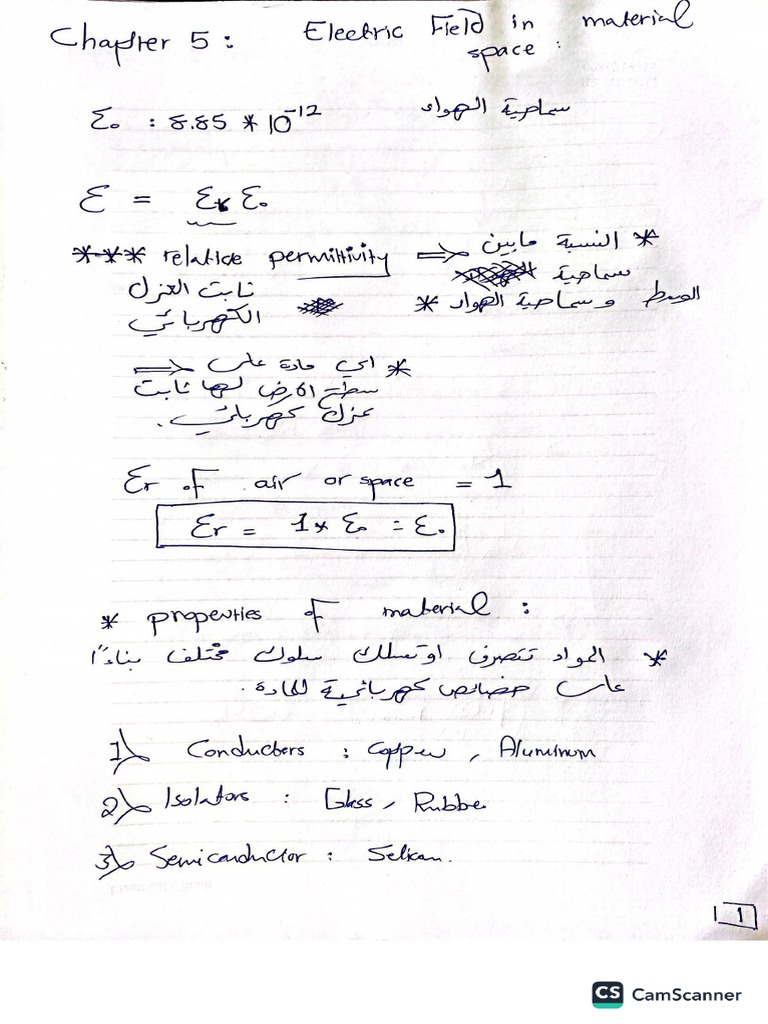 Chapter 5 : Electric Field in material
space :
ε. : 8.85 * 10^-12 سماحية الهواء
ε = εr ε.
*** relative permittivity ⇒ * النسبة مابين
سماحية
ثابت العزل
الوسط و سماحية الهواء *
الكهربائي
* اي مادة على ⇒
سطح الارض لها ثابت
عزل كهربائي .
εr of air or space = 1
εr = 1 * ε. = ε.
* properties of material :
* المواد تتصرف او تسلك سلوك مختلف بناءًا
على خصائص كهربائية للمادة .
1) Conductors : Copper , Aluminum
2) Isolators : Glass , Rubber
3) Semiconductor : Selicon .
1
CS CamScanner